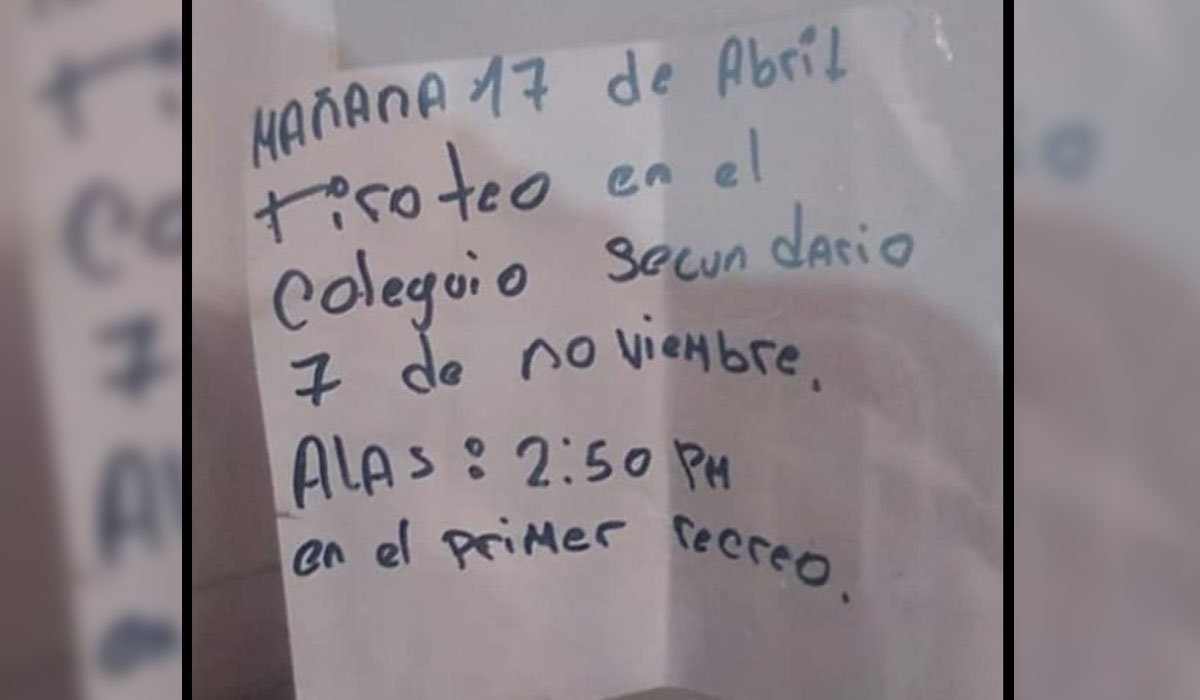 MAÑANA 17 de Abril
tiroteo en el
Coleguio Secundario
7 de noviembre.
ALAS: 2:50 PM
en el primer recreo.